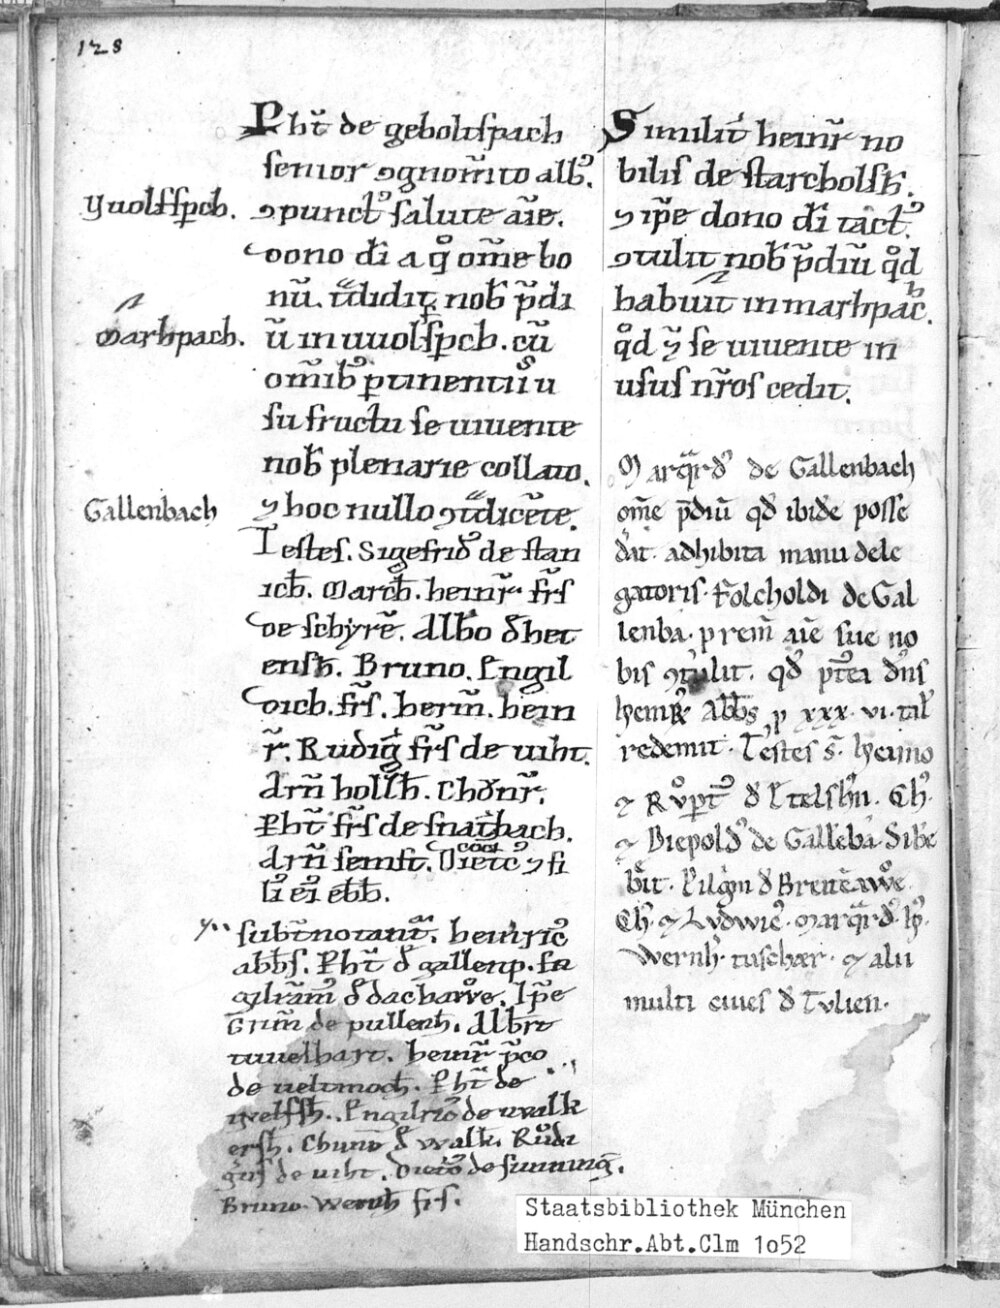 128
Pht̄ de geboltspach
senior ꝯgnom̄ito alb᷒.
ꝯpunct᷒ salute aīe.
dono dī a q̊ om̄e bo
nū. tᷓdidit nob̄ p̄di
ū in uuolfspch. cū
om̄ib᷒ ꝑtinentiis u
su fructu se uiuente
nob̄ plenarie collato.
⁊ hoc nullo ꝯtᷓdicēte.
Testes. Sigefrid᷒ de stan
ich̄. March̄. heinr̄. fr̄s
de schyrē. Albō d̄ het
ensh̄. Bruno. Engil
dich. fr̄s. herm̄. hein
r̄. Rudiḡ fr̄s de uiht.
Arn̄ hollh̄. Chv̊nr̄.
Pht̄ fr̄s de snaitbach.
Arn̄ semft. Dietc᷒ ⁊ fi
lī eī eb̄b̄.
subt̄notant᷑. heinric᷒
abb̄s. Pht̄ d̄ gallenp. En
gilrām᷒ d̄ dachawe. Ip̄e
Grim̄ de pullenh̄. Alb̄rt
tuuelhart. heinr̄ p̄co
de ueltmoch̄. Pht̄ de
welfsh̄. Engilric᷒ de walk
ersh̄. Chuno d̄ walk̄. Růdi
gus᷒ de uiht. Dietc᷒ de sunninḡ.
Bruno. Wernh̄ frs.
yuolfspch.
Marhpach.
Gallenbach
Similit᷑ heinr̄ no
bilis de starcholsh̄.
⁊ ip̄e dono dī tact᷒.
ꝯtulit nob̄ p̄diū q̊d
habuit in marhpach.
q̊d ⁊ se uiuente in
usus nr̄os cedit.
Marq̄rd᷒ de Gallenbach
om̄e p̄diū qd᷒ ibide posse
dit. adhibita manu dele
gatoris. Folcholdi de Gal
lenba. p rem̄ aīe sue no
bis ꝯtulit. qd᷒ pt̄ea dn̄s
heinr̄ Abb̄s p xxx. vi. tal̄
redemit. Testes s̄. heimo
⁊ Rv̊pt᷒ d̄ Etelshn̄. Ch᷒.
⁊ Diepold᷒ de Gallēba. Sibe
b̄it. Pilgm̄ d̄ Brenēawe.
Ch᷒. ⁊ Lvdwic᷒. Marq̄rd᷒. h᷒.
Wernh̄. tuschær. ⁊ alii
multi ciues d̄ Tvlien.
Staatsbibliothek München
Handschr.Abt.Clm 1o52